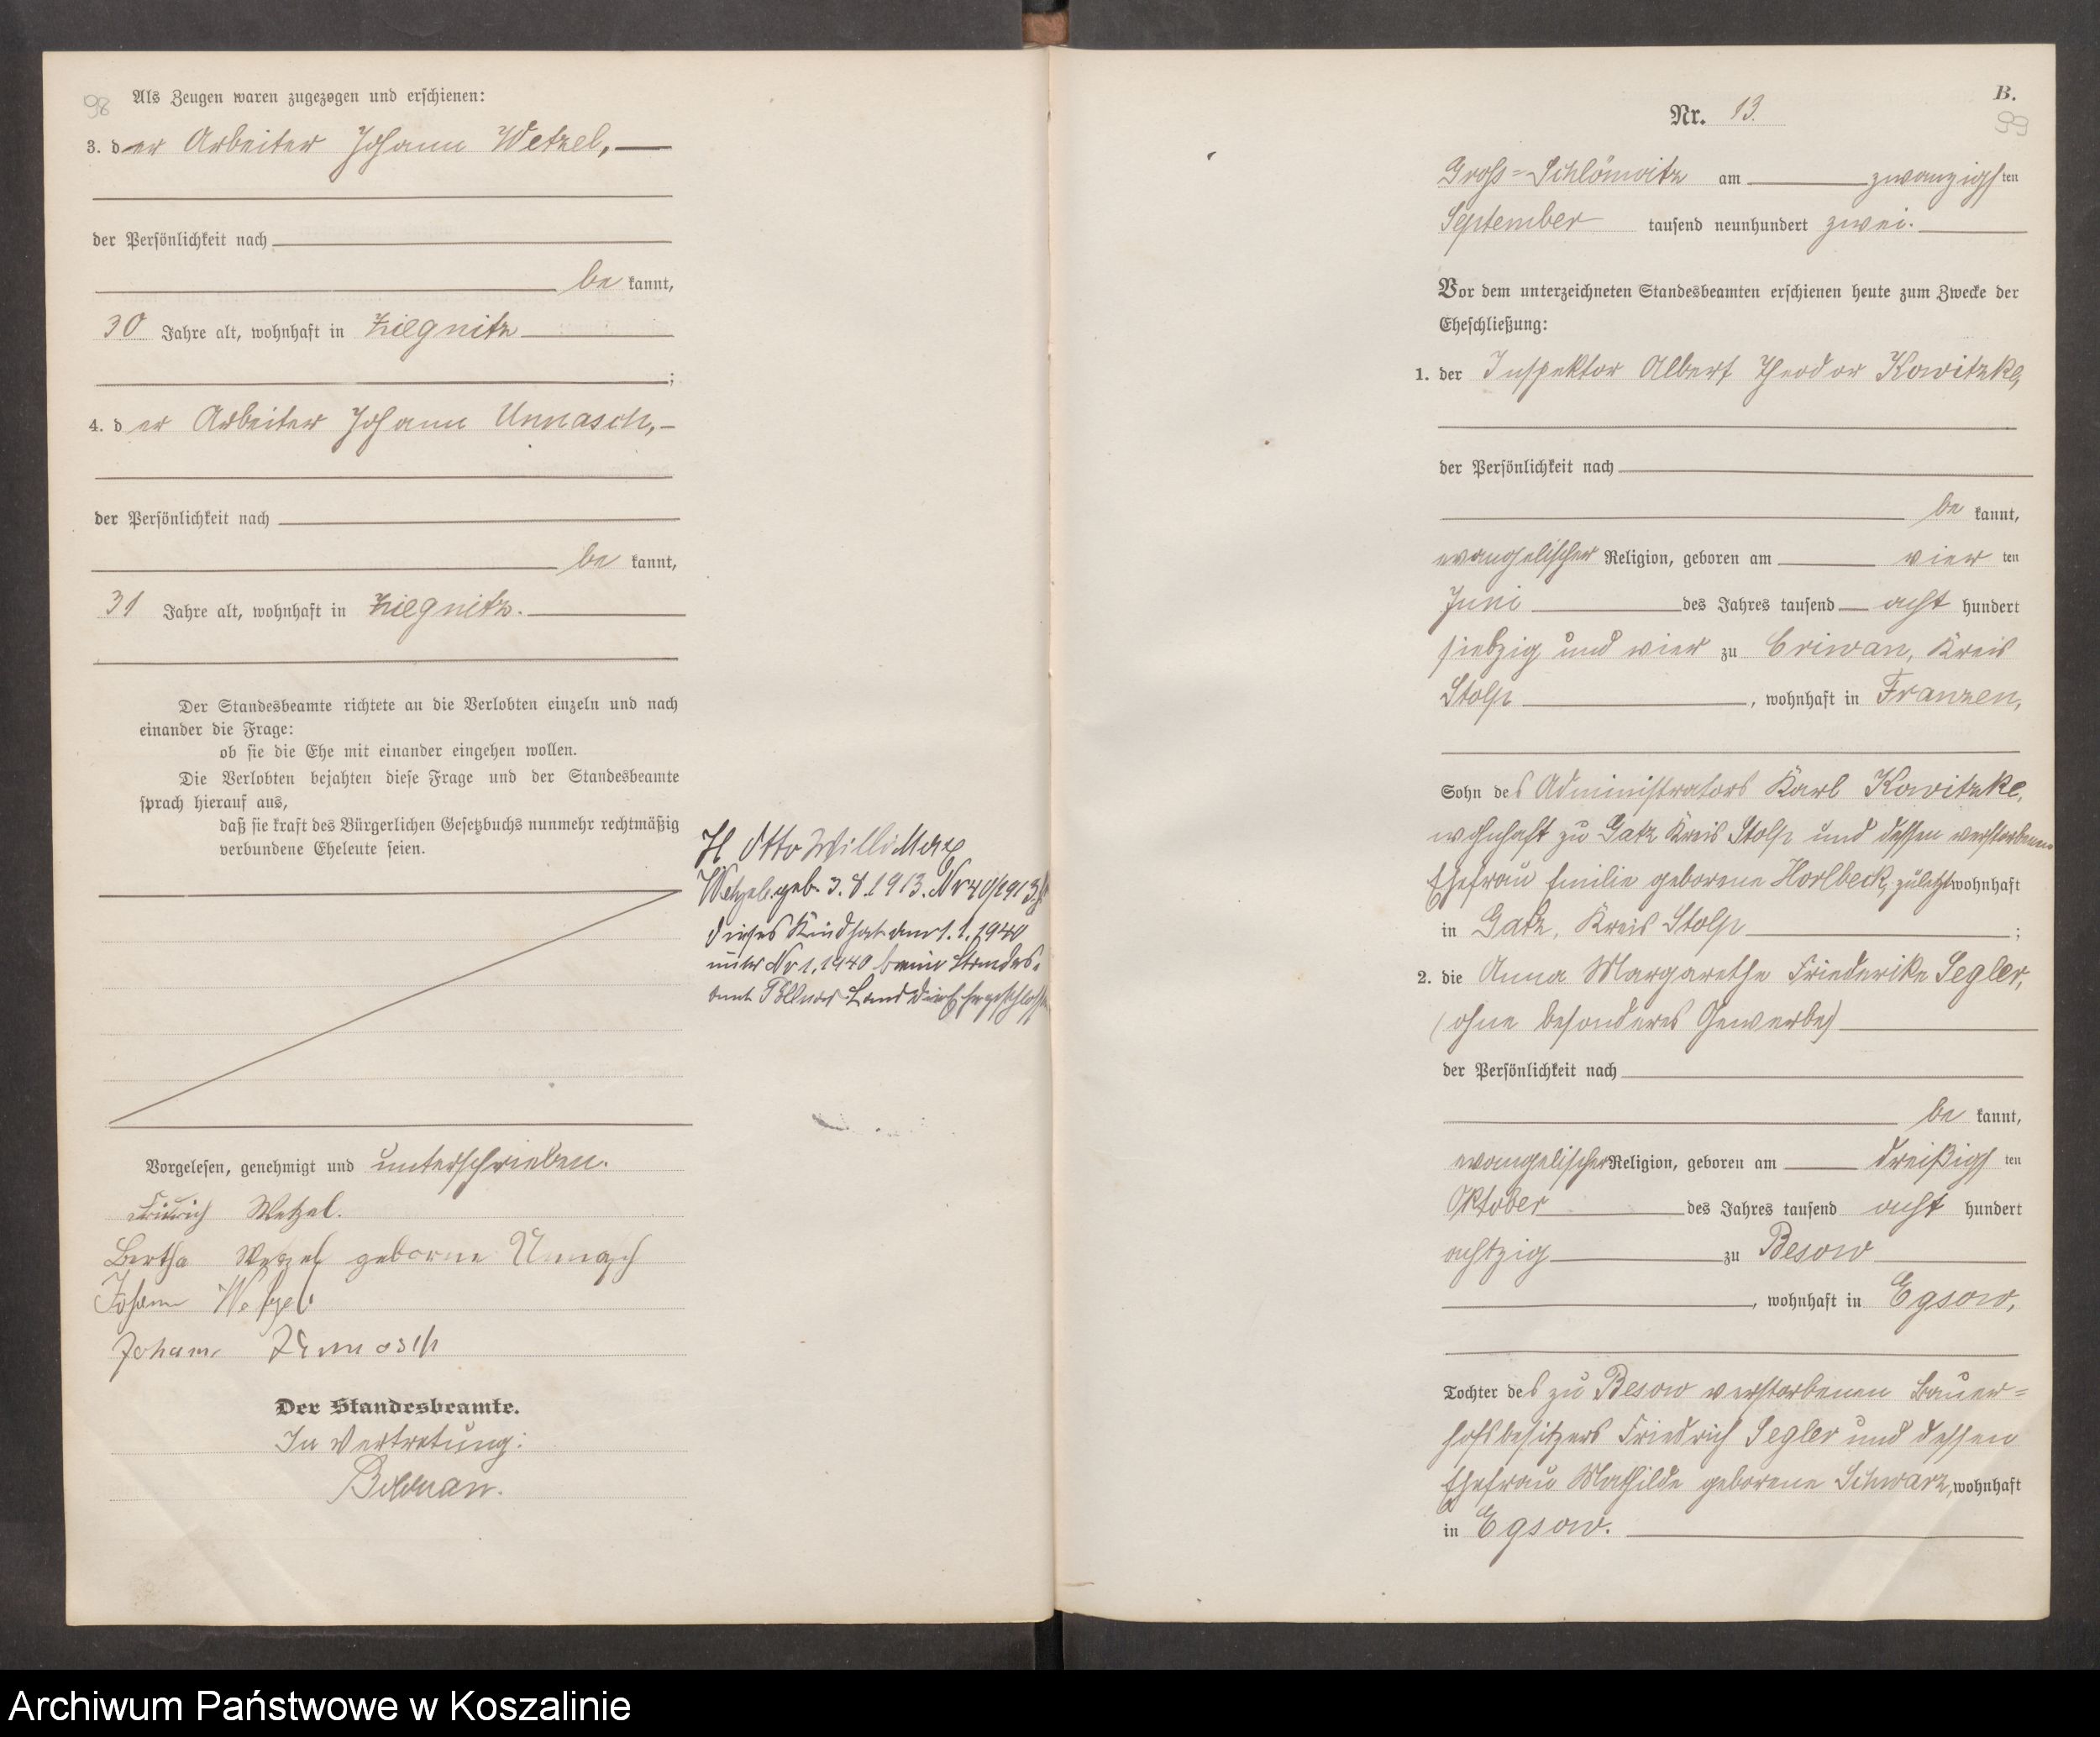 98
Als Zeugen waren zugezogen und erschienen:
3. der Arbeiter Johann Wetzel,
der Persönlichkeit nach
be kannt,
30 Jahre alt, wohnhaft in Ziegnitz
;
4. der Arbeiter Johann Unnasch,
der Persönlichkeit nach
be kannt,
31 Jahre alt, wohnhaft in Ziegnitz.
Der Standesbeamte richtete an die Verlobten einzeln und nach
einander die Frage:
ob sie die Ehe mit einander eingehen wollen.
Die Verlobten bejahten diese Frage und der Standesbeamte
sprach hierauf aus,
daß sie kraft des Bürgerlichen Gesetzbuchs nunmehr rechtmäßig
verbundene Eheleute seien.
H Otto Willi Max
Wetzel geb. 3.8.1913. Nr 40/1913
dieses Kind hat am 1.1.1940
unter Nr 1, 1940 beim Standes-
amt Land die Ehe geschlossen
Vorgelesen, genehmigt und unterschrieben.
Friedrich Wetzel.
Bertha Wetzel geborne Unnasch
Johann Wetzel
Johann Unnasch
Der Standesbeamte.
In Vertretung:
B.
99
Nr. 13.
Gross-Schlönwitz am zwanzigsten
September tausend neunhundert zwei.
Vor dem unterzeichneten Standesbeamten erschienen heute zum Zwecke der
Eheschließung:
1. der Inspektor Albert Theodor Kowitzke,
der Persönlichkeit nach
be kannt,
evangelischer Religion, geboren am vier ten
Juni des Jahres tausend acht hundert
siebzig und vier zu Criwan, Kreis
Stolp, wohnhaft in Franzen,
Sohn des Administrators Karl Kowitzke,
wohnhaft zu Gatz Kreis Stolp und dessen verstorbenen
Ehefrau Emilie geborene Horlbeck, zuletzt wohnhaft
in Gatz, Kreis Stolp;
2. die Anna Margarethe Friederike Segler,
(ohne besonderes Gewerbe)
der Persönlichkeit nach
be kannt,
evangelischer Religion, geboren am dreißigsten
Oktober des Jahres tausend acht hundert
achtzig zu Besow
, wohnhaft in Egsow,
Tochter des zu Besow verstorbenen Bauer=
hofsbesitzers Friedrich Segler und dessen
Ehefrau Mathilde geborene Schwarz, wohnhaft
in Egsow.
Archiwum Państwowe w Koszalinie